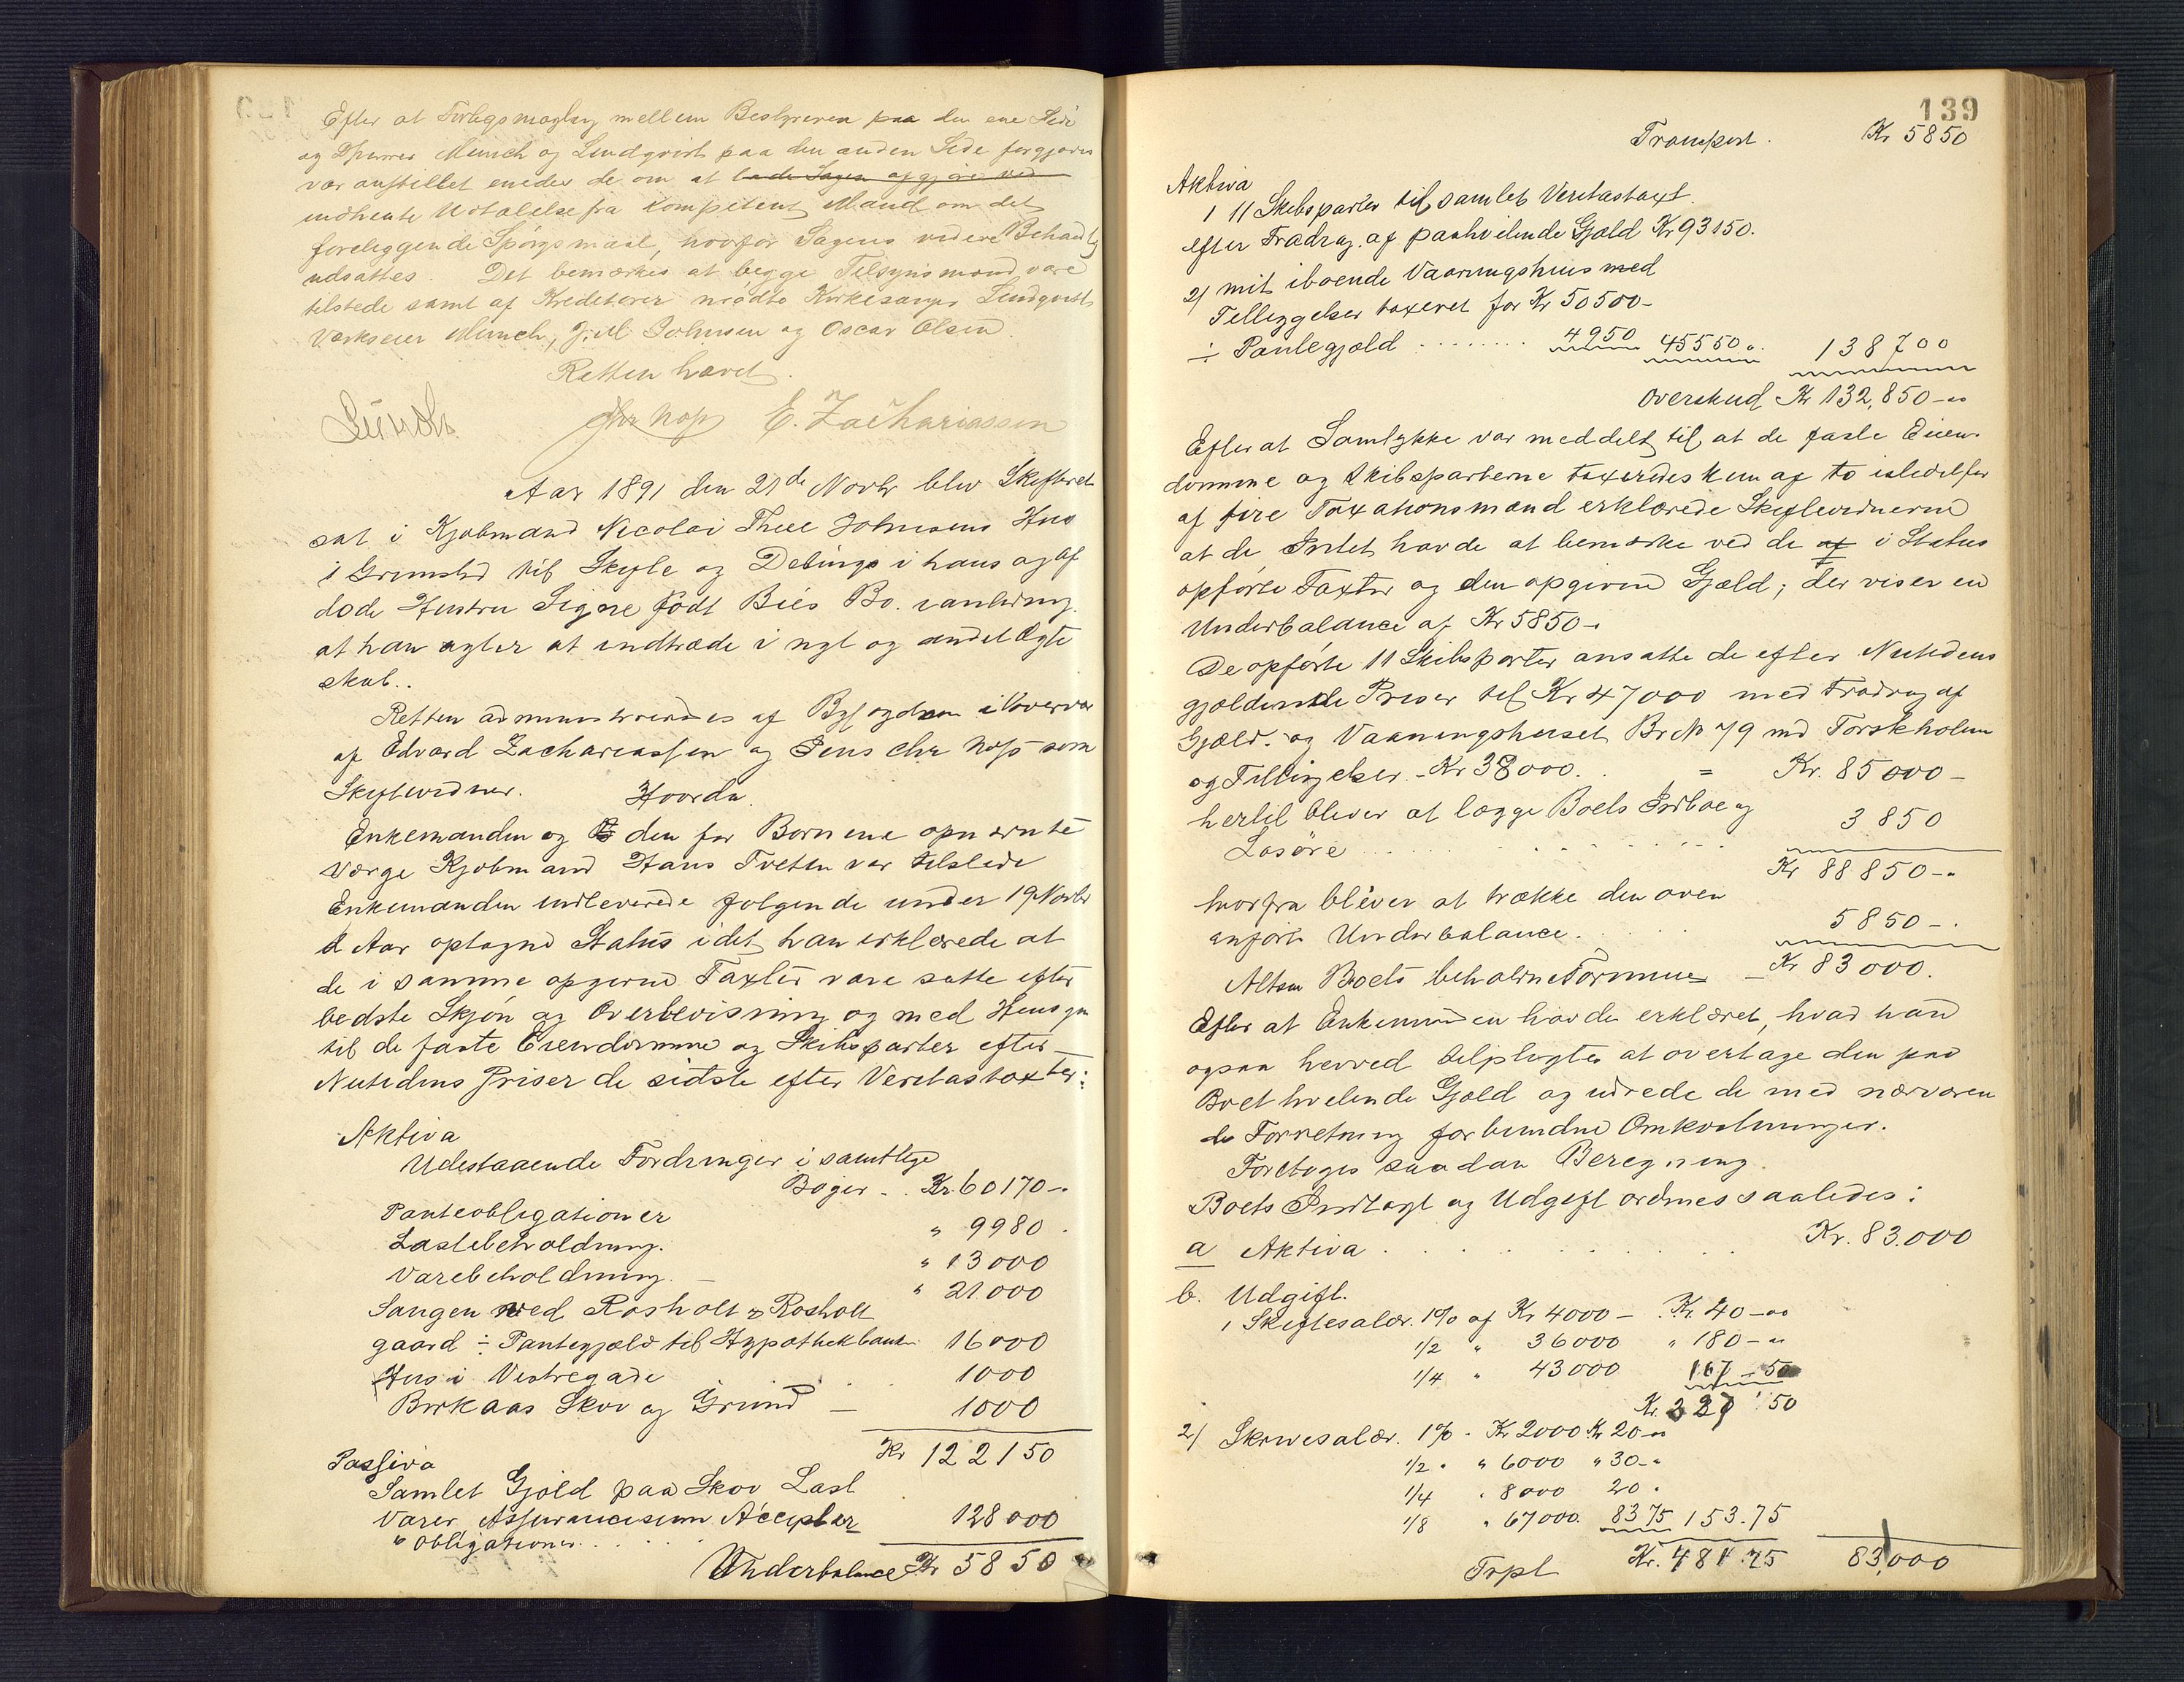 Efter at Forligsmægling mellem Bestyreren paa den ene Side
og Munch og Lindqvist paa den anden Side forgjæves
var anstillet enedes de om at lade Sagen afgjøre ved
indhente Udtalelse fra kompetent Mand om det
foreliggende Spörgsmaal, hvorfor Sagens videre Behandlg
udsattes. Det bemærkes at begge Tilsynsmænd vare
tilstede samt af Kreditorer mødte Kirkesanger Lindqvist
Værkseier Munch, Johnsen og Oscar Olsen.
Retten hævet.
Chr Nop E. Zachariassen
Aar 1891 den 21de Novbr blev Skifteret
sat i Kjøbmand Nicolai Thee Johnsens Hus
i Grimstad til Skifte og Deling i hans og af
døde Hustru Signe født Biés Bo. i anledning
at han agter at indtræde i nyt og andet Ægte
skab..
Retten administreredes af Byfogden i Overvær
af Edvard Zachariassen og Jens Chr Nop som
Skiftevidner. Hvorda.
Enkemanden og den for Børnene opnævnte
Værge Kjøbmand Hans Tveten var tilstede
Enkemanden indleverede følgende under 19 Novbr
d Aar optagne Status idet han erklærede at
de i samme opgivne Taxter vare satte efter
bedste Skjön og Overbevisning og med Hensyn
til de faste Eiendomme og Skibsparter efter
Nutidens Priser de sidste efter Veritastaxter:
Aktiva
Udestaaende Fordringer i samtlige
Bøger . . Kr. 60170-.
Panteobligationer " 9980 .
Lastebeholdning. " 13000
Varebeholdning. - " 21000
Saugen ved Rosholt & Rosholt
gaard ÷ Pantegjæld til Hypothekbank 16000
Hus i Vestregade . . 1000
Birkaas Skov og Grund - 1000
Kr 122150
Passiva
Samlet Gjæld paa Skov Last
Varer, Assurancesum Accepter 128000
& Obligationer. . . . .
Underbalance Kr 5850
139
Transport. Kr 5850
Aktiva
1 11 Skibsparter til samlet Veritastaxt
efter Fradrag af paahvilende Gjæld Kr 93150.
2) mit iboende Vaaningshus med
Tilliggelser taxeret for Kr 50500-
÷ Pantegjæld . . . . . . . . 4950 45550 ". 138700
Overskud Kr 132,850-"
Efterat Samtykke var meddelt til at de faste Eien-
domme og Skibsparterne taxeredes kun af to istedetfor
af fire Taxationsmænd erklærede Skiftevidnerne
at de Intet havde at bemærke ved de af i Status
opförte Taxter og den opgivne Gjæld; der viser en
Underbalance af Kr 5850-.
De opförte 11 Skibsparter ansatte de efter Nutidens
gjældende Priser til Kr 47000 med Fradrag af
Gjæld. og Vaaningshuset Br No 79 med Torskholmen
og Tilliggelser. - Kr 38000. = Kr. 85000-
hertil bliver at lægge Boets Indbo og 3850
Løsöre . . . . . . . . . .
Kr 88850-.
hvorfra bliver at trække den oven
anförte Underbalance. . . . 5850-.
Altsaa Boets beholdne Formue - Kr 83000.
Efter at Enkemanden havde erklæret, hvad han
ogsaa herved tilpligtes at overtage den paa
Boet hvilende Gjæld og udrede de med nærværen
de Forretning forbundne Omkostninger.
Foretoges saadan Beregning.
Boets Indtægt og Udgift ordnes saaledes:
a Aktiva . . . . . . . . Kr. 83.000
b. Udgift.
1 Skiftesalær. 1% af Kr 4000- Kr. 40-"
1/2 " 36000 " 180-"
1/4 " 43000 107-50
Kr. 327 50
2) Skrivesalær. 1% - Kr 2000 Kr 20-"
1/2 " " 6000 " 30-"
1/4 " 8000 20 "
1/8 " 67000. 83 75 153.75
Trpt Kr. 481.25 83,000